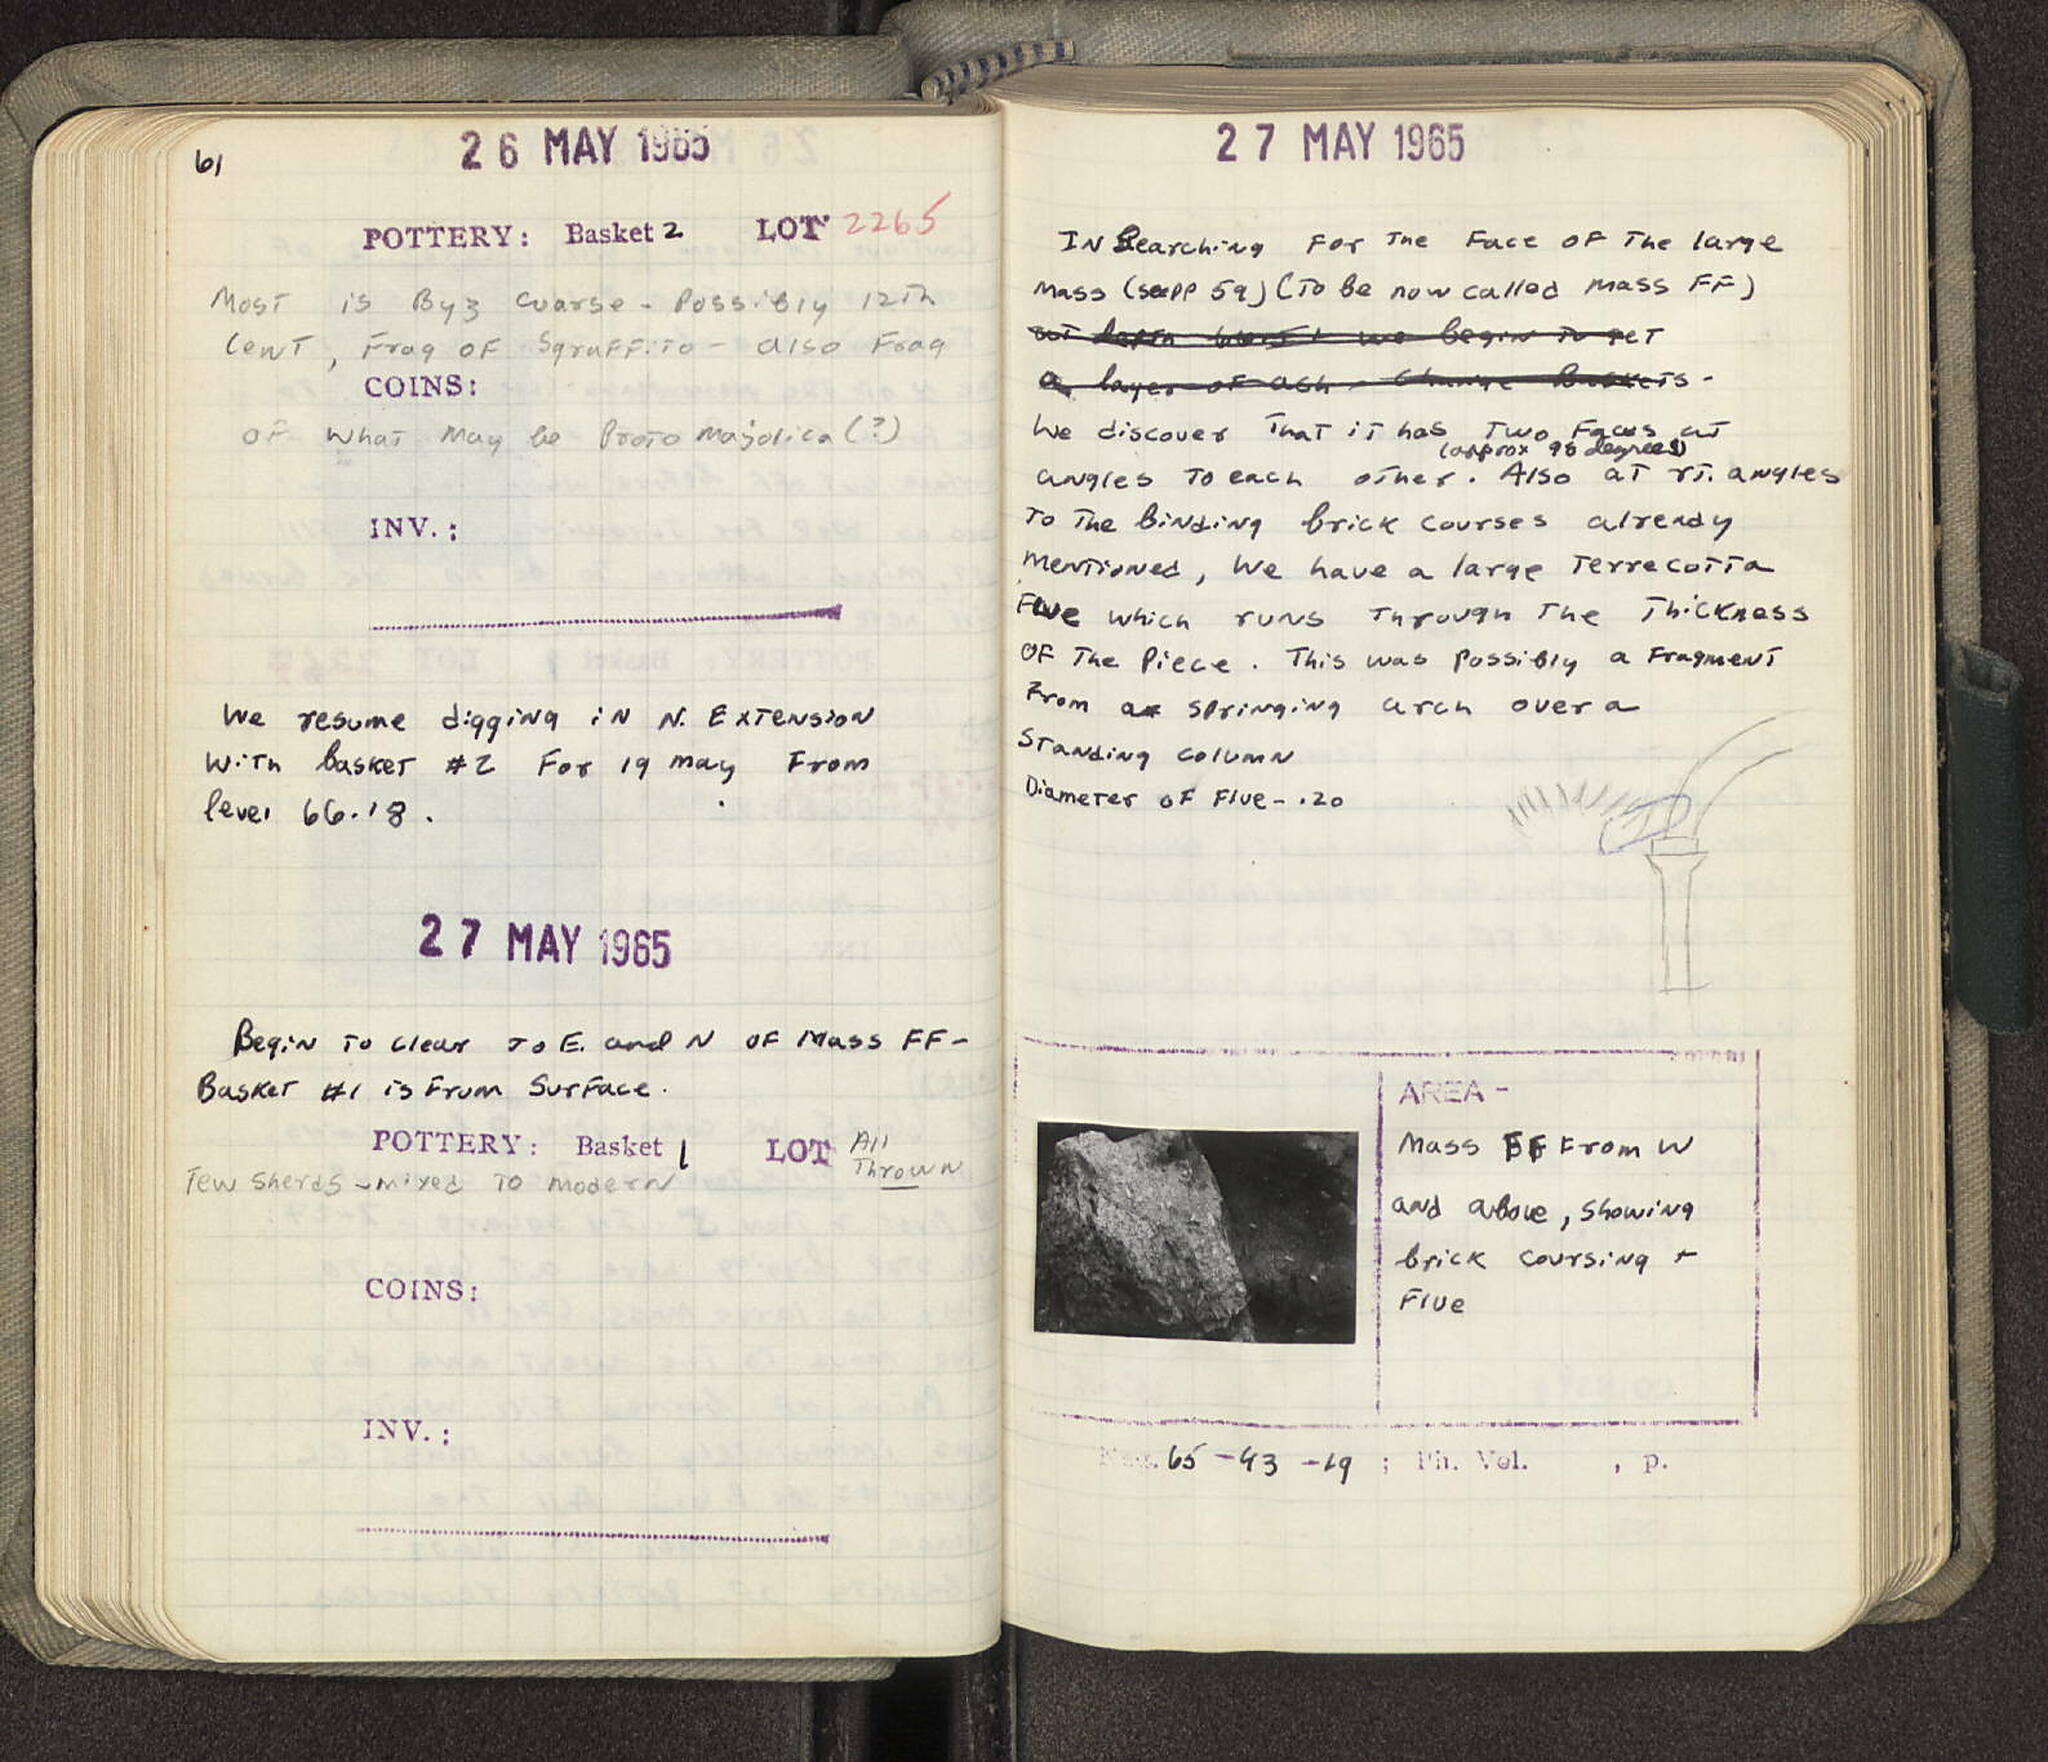 61
26 MAY 1965
POTTERY: Basket 2 LOT 2265
Most is Byz coarse - Possibly 12th
Cent, Frag of Sgraffito - also Frag
COINS:
of what may be Proto majolica (?)
INV.:
We resume digging in N. Extension
with basket #2 For 19 may From
level 66.18.
27 MAY 1965
Begin to clear to E. and N of Mass FF -
Basket #1 is From Surface.
POTTERY: Basket 1 LOT All
Thrown
Few sherds - mixed to modern
COINS:
INV.:
27 MAY 1965
In Searching For the Face of the large
Mass (see pp 59) (To be now called Mass FF)
we begin to get
a layer of ash - Change Baskets -
We discover that it has two Faces at
(approx 98 degrees)
angles to each other. Also at rt. angles
to the binding brick courses already
mentioned, we have a large terrecotta
Flue which runs through the thickness
of the Piece. This was possibly a Fragment
From a springing arch over a
standing column
Diameter of Flue - .20
AREA -
Mass FF From W
and above, showing
brick coursing +
Flue
Neg. 65-43-19 ; Ph. Vol. , p.